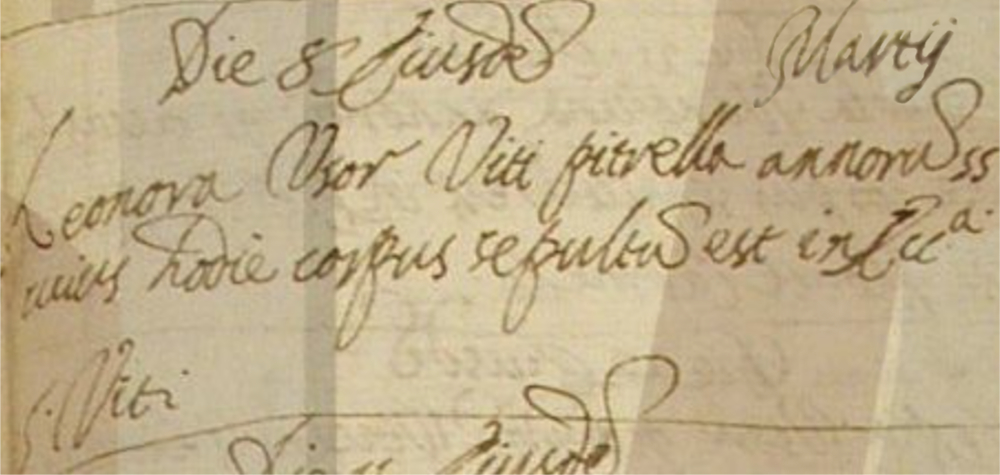 Die 8 Eiusdẽ Martij
Leonora Vxor Viti pitrella annorũ 55
cuius hodie corpus sepultũ est in Ecc.a
S. Viti
Die Eiusdẽ